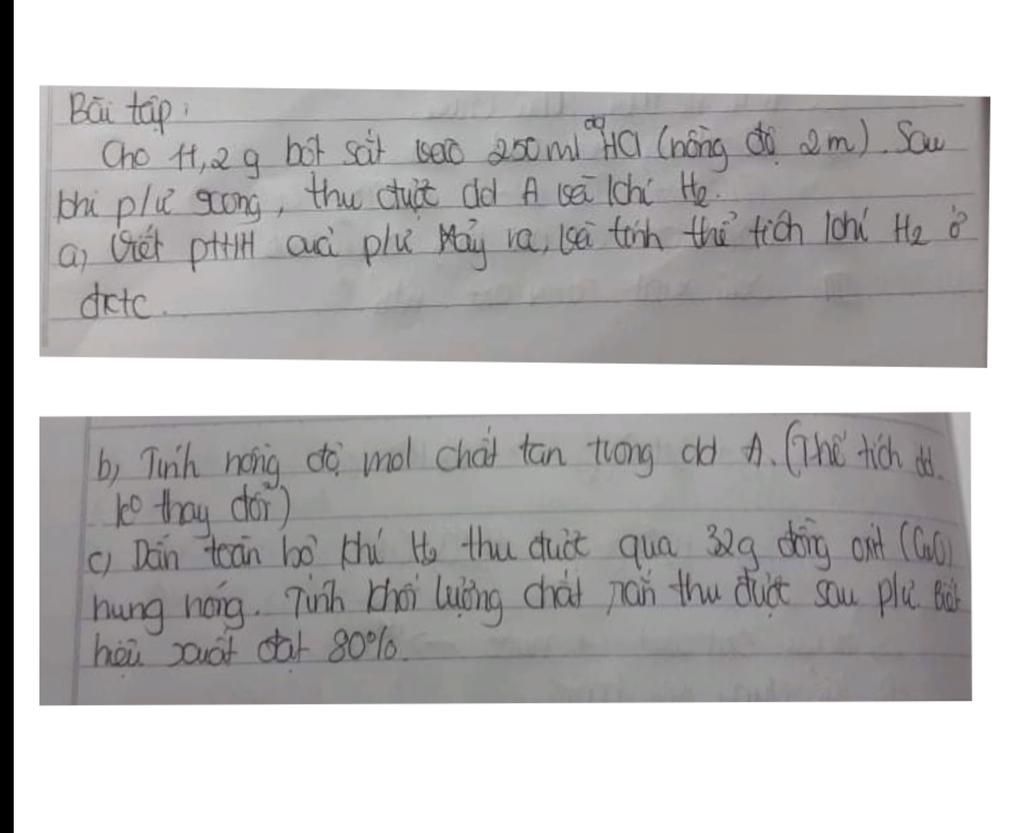 Bài tập:
Cho 11,2 g bột sắt vào 250ml dd HCl (nồng độ 2m). Sau
khi p/ư xong, thu được dd A và khí H2.
a) Viết PTHH của p/ư xảy ra, và tính thể tích khí H2 ở
đktc.
b) Tính nồng độ mol chất tan trong dd A. (Thể tích dd.
ko thay đổi)
c) Dẫn toàn bộ khí H2 thu được qua 32g đồng oxit (CuO)
nung nóng. Tính khối lượng chất rắn thu được sau p/ư. Biết
hiệu xuất đạt 80%.